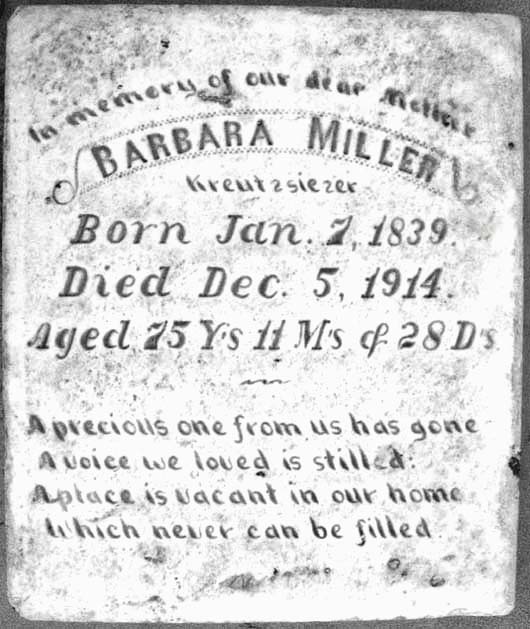 In memory of our dear Mother
BARBARA MILLER
Kreutzsiezer
Born Jan. 7, 1839.
Died Dec. 5, 1914.
Aged 75 Y's 11 M's & 28 D's
A precious one from us has gone
A voice we loved is stilled:
A place is vacant in our home
Which never can be filled.